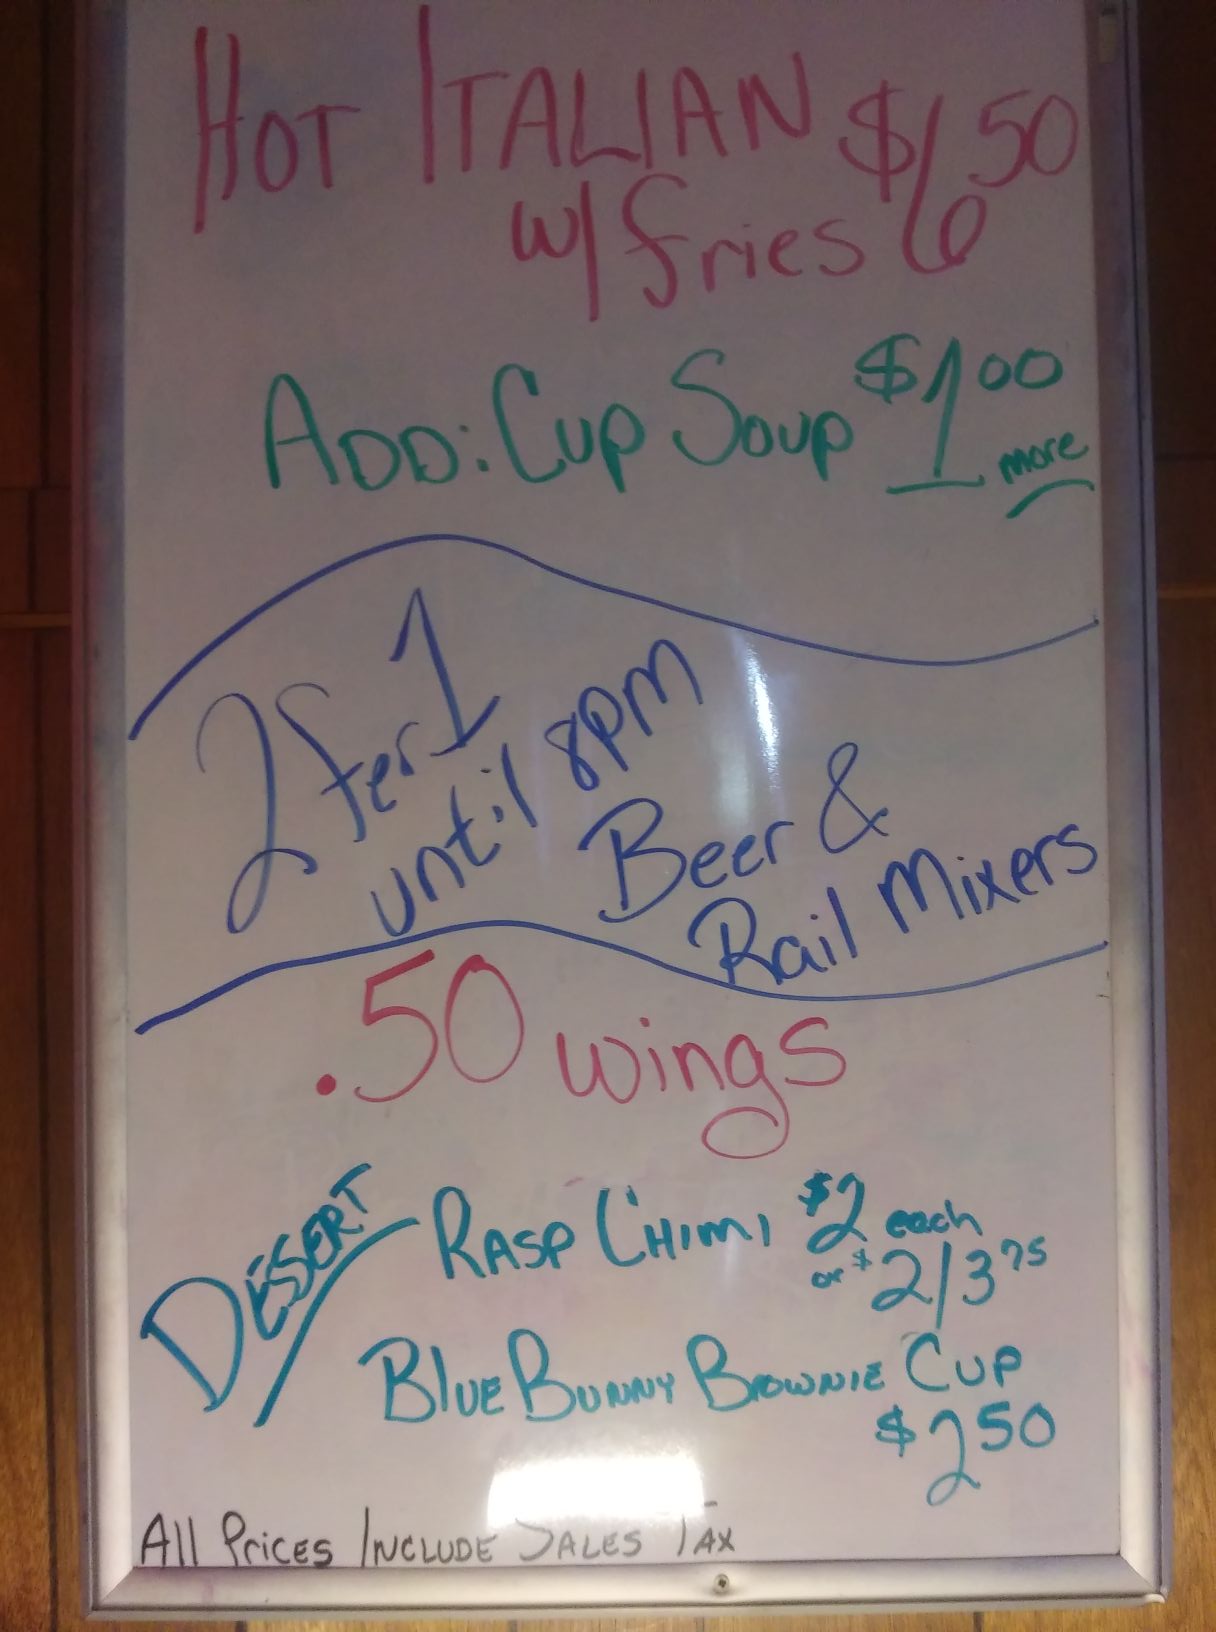 HOT ITALIAN $6.50
w/ fries
ADD: Cup Soup $1.00
more
2 fer 1
until 8pm
Beer &
Rail Mixers
.50 wings
DESSERT
RASP CHIMI $2 each
or $2/3.75
BLUE BUNNY BROWNIE CUP
$2.50
All Prices Include Sales Tax